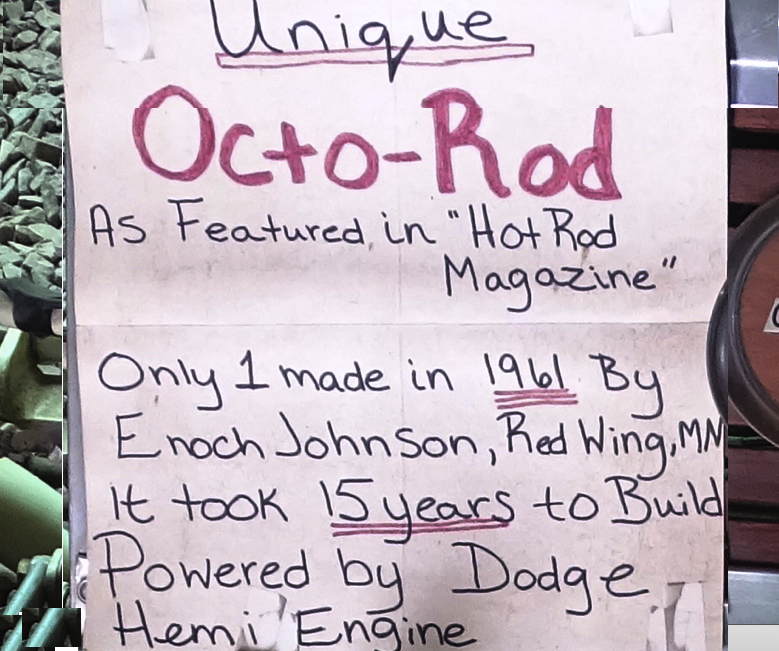 Unique
Octo-Rod
As Featured in "Hot Rod
Magazine"
Only 1 made in 1961 By
Enoch Johnson, Red Wing, MN
it took 15 years to Build
Powered by Dodge
Hemi Engine